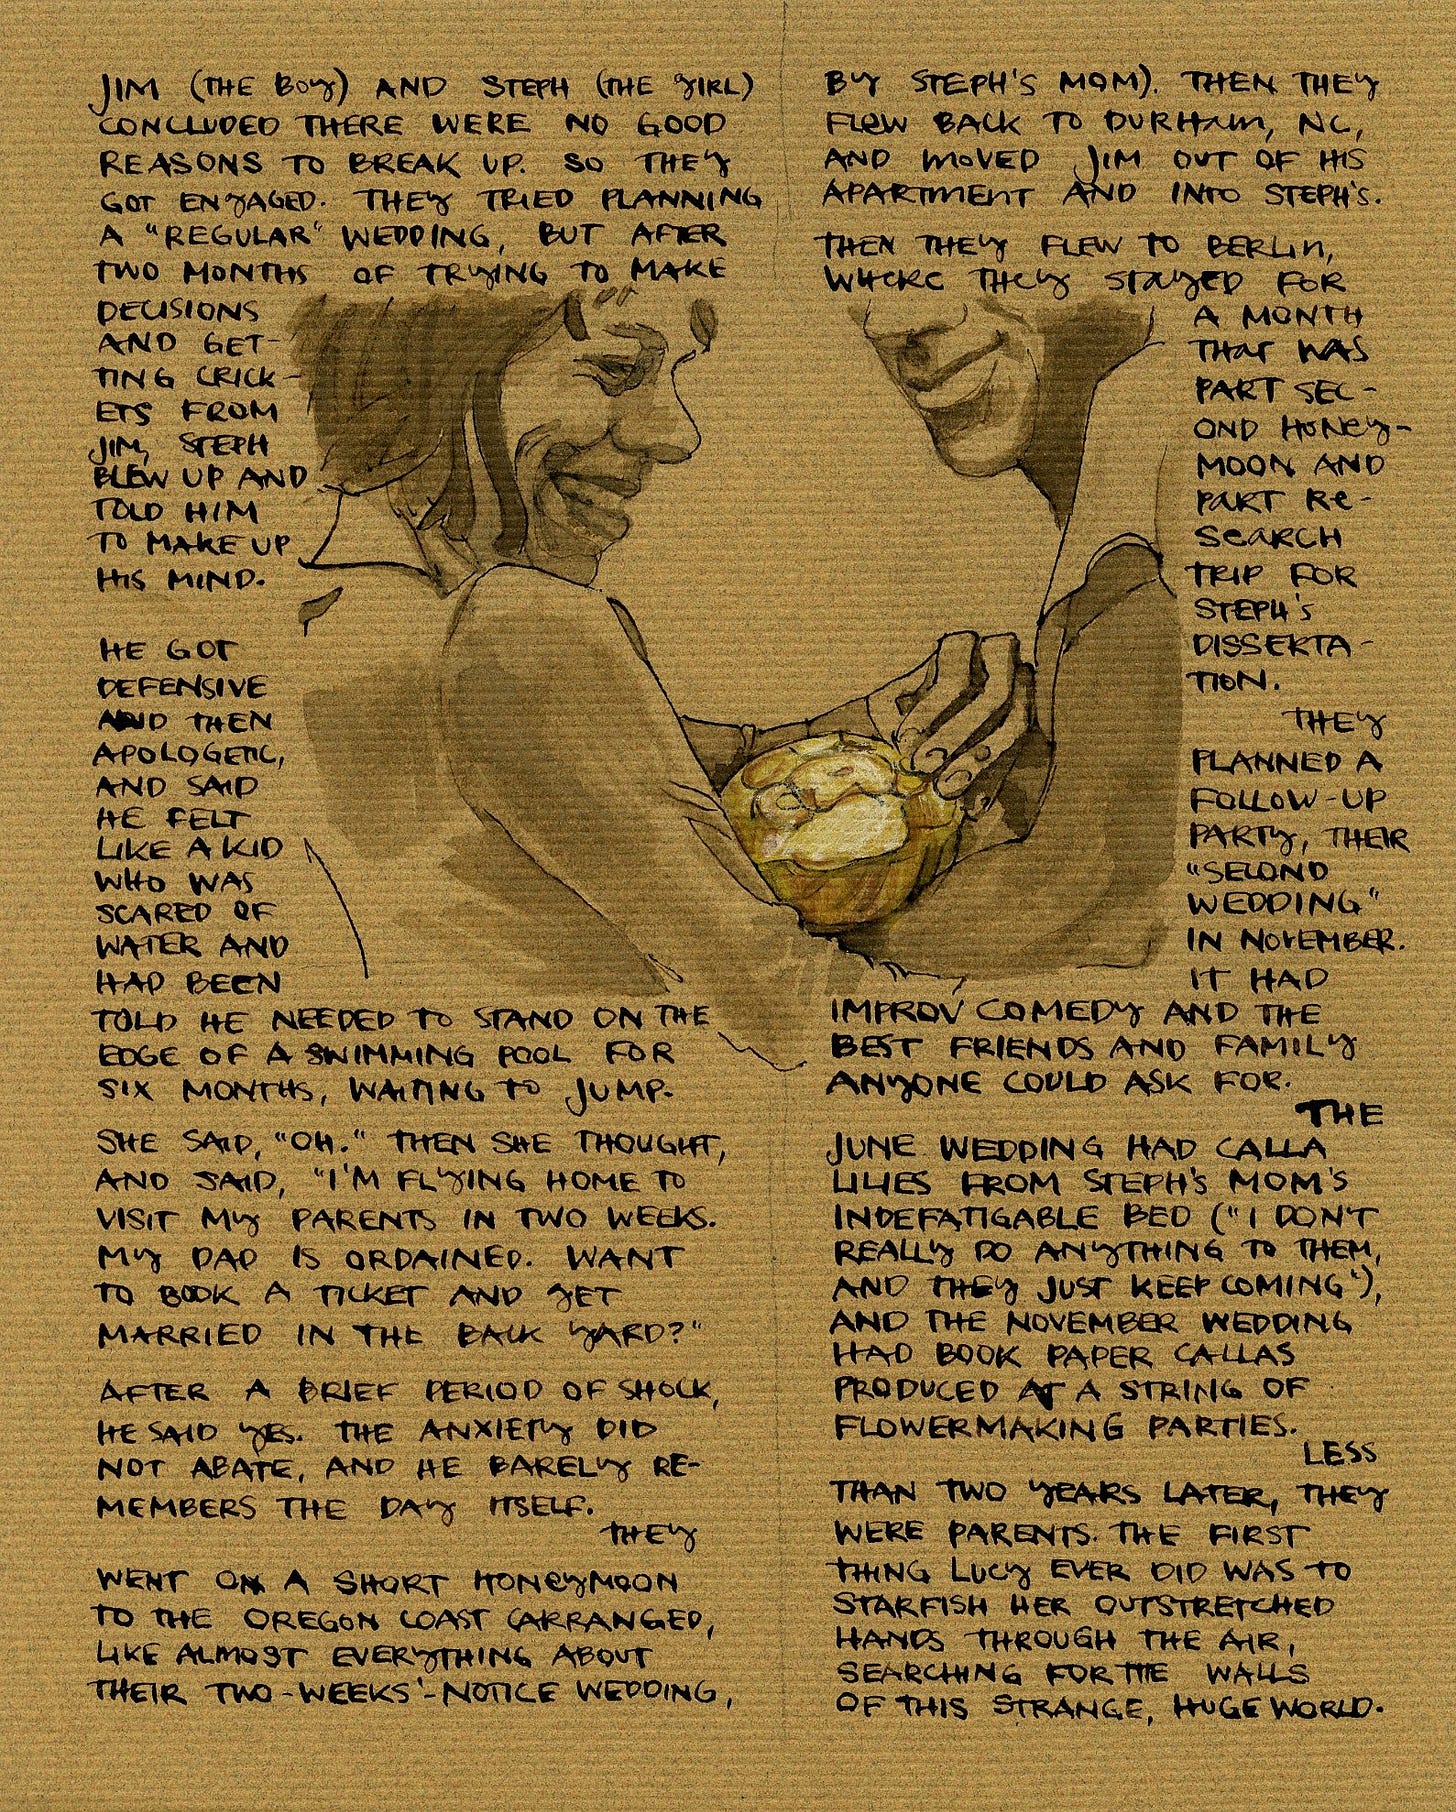 JIM (THE BOY) AND STEPH (THE GIRL)
CONCLUDED THERE WERE NO GOOD
REASONS TO BREAK UP. SO THEY
GOT ENGAGED. THEY TRIED PLANNING
A "REGULAR" WEDDING, BUT AFTER
TWO MONTHS OF TRYING TO MAKE
DECISIONS
AND GET-
TING CRICK-
ETS FROM
JIM, STEPH
BLEW UP AND
TOLD HIM
TO MAKE UP
HIS MIND.
HE GOT
DEFENSIVE
AND THEN
APOLOGETIC,
AND SAID
HE FELT
LIKE A KID
WHO WAS
SCARED OF
WATER AND
HAD BEEN
TOLD HE NEEDED TO STAND ON THE
EDGE OF A SWIMMING POOL FOR
SIX MONTHS, WAITING TO JUMP.
SHE SAID, "OH." THEN SHE THOUGHT,
AND SAID, "I'M FLYING HOME TO
VISIT MY PARENTS IN TWO WEEKS.
MY DAD IS ORDAINED. WANT
TO BOOK A TICKET AND GET
MARRIED IN THE BACK YARD?"
AFTER A BRIEF PERIOD OF SHOCK,
HE SAID YES. THE ANXIETY DID
NOT ABATE, AND HE BARELY RE-
MEMBERS THE DAY ITSELF.
THEY
WENT ON A SHORT HONEYMOON
TO THE OREGON COAST (ARRANGED,
LIKE ALMOST EVERYTHING ABOUT
THEIR TWO-WEEKS'-NOTICE WEDDING,
BY STEPH'S MOM). THEN THEY
FLEW BACK TO DURHAM, NC,
AND MOVED JIM OUT OF HIS
APARTMENT AND INTO STEPH'S.
THEN THEY FLEW TO BERLIN,
WHERE THEY STAYED FOR
A MONTH
THAT WAS
PART SEC-
OND HONEY-
MOON AND
PART RE-
SEARCH
TRIP FOR
STEPH'S
DISSERTA-
TION.
THEY
PLANNED A
FOLLOW-UP
PARTY, THEIR
"SECOND
WEDDING"
IN NOVEMBER.
IT HAD
IMPROV COMEDY AND THE
BEST FRIENDS AND FAMILY
ANYONE COULD ASK FOR.
THE
JUNE WEDDING HAD CALLA
LILIES FROM STEPH'S MOM'S
INDEFATIGABLE BED ("I DON'T
REALLY DO ANYTHING TO THEM,
AND THEY JUST KEEP COMING"),
AND THE NOVEMBER WEDDING
HAD BOOK PAPER CALLAS
PRODUCED AT A STRING OF
FLOWERMAKING PARTIES.
LESS
THAN TWO YEARS LATER, THEY
WERE PARENTS. THE FIRST
THING LUCY EVER DID WAS TO
STARFISH HER OUTSTRETCHED
HANDS THROUGH THE AIR,
SEARCHING FOR THE WALLS
OF THIS STRANGE, HUGE WORLD.